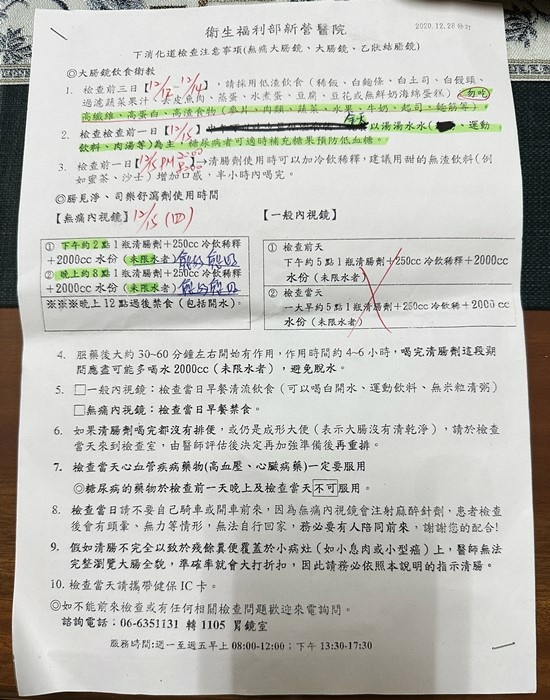 衛生福利部新營醫院
2020.12.28修訂
下消化道檢查注意事項(無痛大腸鏡、大腸鏡、乙狀結腸鏡)
◎大腸鏡飲食衛教
1. 檢查前三日【12/12~12/14】,請採用低渣飲食(稀飯、白麵條、白土司、白饅頭、
過濾蔬菜果汁、去皮魚肉、蒸蛋、水煮蛋、豆腐、豆花或無鮮奶海綿蛋糕)勿吃
高纖維、高蛋白、高渣食物(麥片、肉類、蔬菜、水果、牛奶、起司、麵筋等)。
2. 檢查檢查前一日【12/15】 以湯湯水水( 、運動
飲料、肉湯等)為主!糖尿病者可適時補充糖果預防低血糖。
3. 檢查前一日【12/15 PM 2:00 8:00】→清腸劑使用時可以加冷飲稀釋,建議用甜的無渣飲料(例
如蜜茶、沙士)增加口感,半小時內喝完。
◎腸見淨、司樂舒瀉劑使用時間
【無痛內視鏡】12/15(四)
① 下午約2點1瓶清腸劑+250cc冷飲稀釋
+2000cc水份(未限水者)
② 晚上約8點1瓶清腸劑+250cc冷飲稀釋
+2000cc水份(未限水者)
※※※晚上12點過後禁食(包括開水)。
【一般內視鏡】
① 檢查前天
下午約5點1瓶清腸劑+250cc冷飲稀釋+2000cc
水份(未限水者)
② 檢查當天
一大早約5點1瓶清腸劑+250cc冷飲稀釋+2000cc
水份(未限水者)
4. 服藥後大約30~60分鐘左右開始有作用,作用時間約4~6小時,喝完清腸劑這段期
間應盡可能多喝水2000cc(未限水者),避免脫水。
5. □一般內視鏡:檢查當日早餐清流飲食(可以喝白開水、運動飲料、無米粒清粥)
□無痛內視鏡:檢查當日早餐禁食。
6. 如果清腸劑喝完都沒有排便,或仍是成形大便(表示大腸沒有清乾淨),請於檢查
當天來到檢查室,由醫師評估後決定再加強準備後再重排。
7. 檢查當天心血管疾病藥物(高血壓、心臟病藥)一定要服用
◎糖尿病的藥物於檢查前一天晚上及檢查當天不可服用。
8. 檢查當日請不要自己騎車或開車前來,因為無痛內視鏡會注射麻醉針劑,患者檢查
後會有頭暈、無力等情形,無法自行回家,務必要有人陪同前來,謝謝您的配合!
9. 假如清腸不完全以致於殘餘糞便覆蓋於小病灶(如小息肉或小型癌)上,醫師無法
完整瀏覽大腸全貌,準確率就會大打折扣,因此請務必依照本說明的指示清腸。
10. 檢查當天請攜帶健保IC卡。
◎如不能前來檢查或有任何相關檢查問題歡迎來電詢問。
諮詢電話:06-6351131 轉 1105 胃鏡室
服務時間:週一至週五早上08:00-12:00;下午13:30-17:30